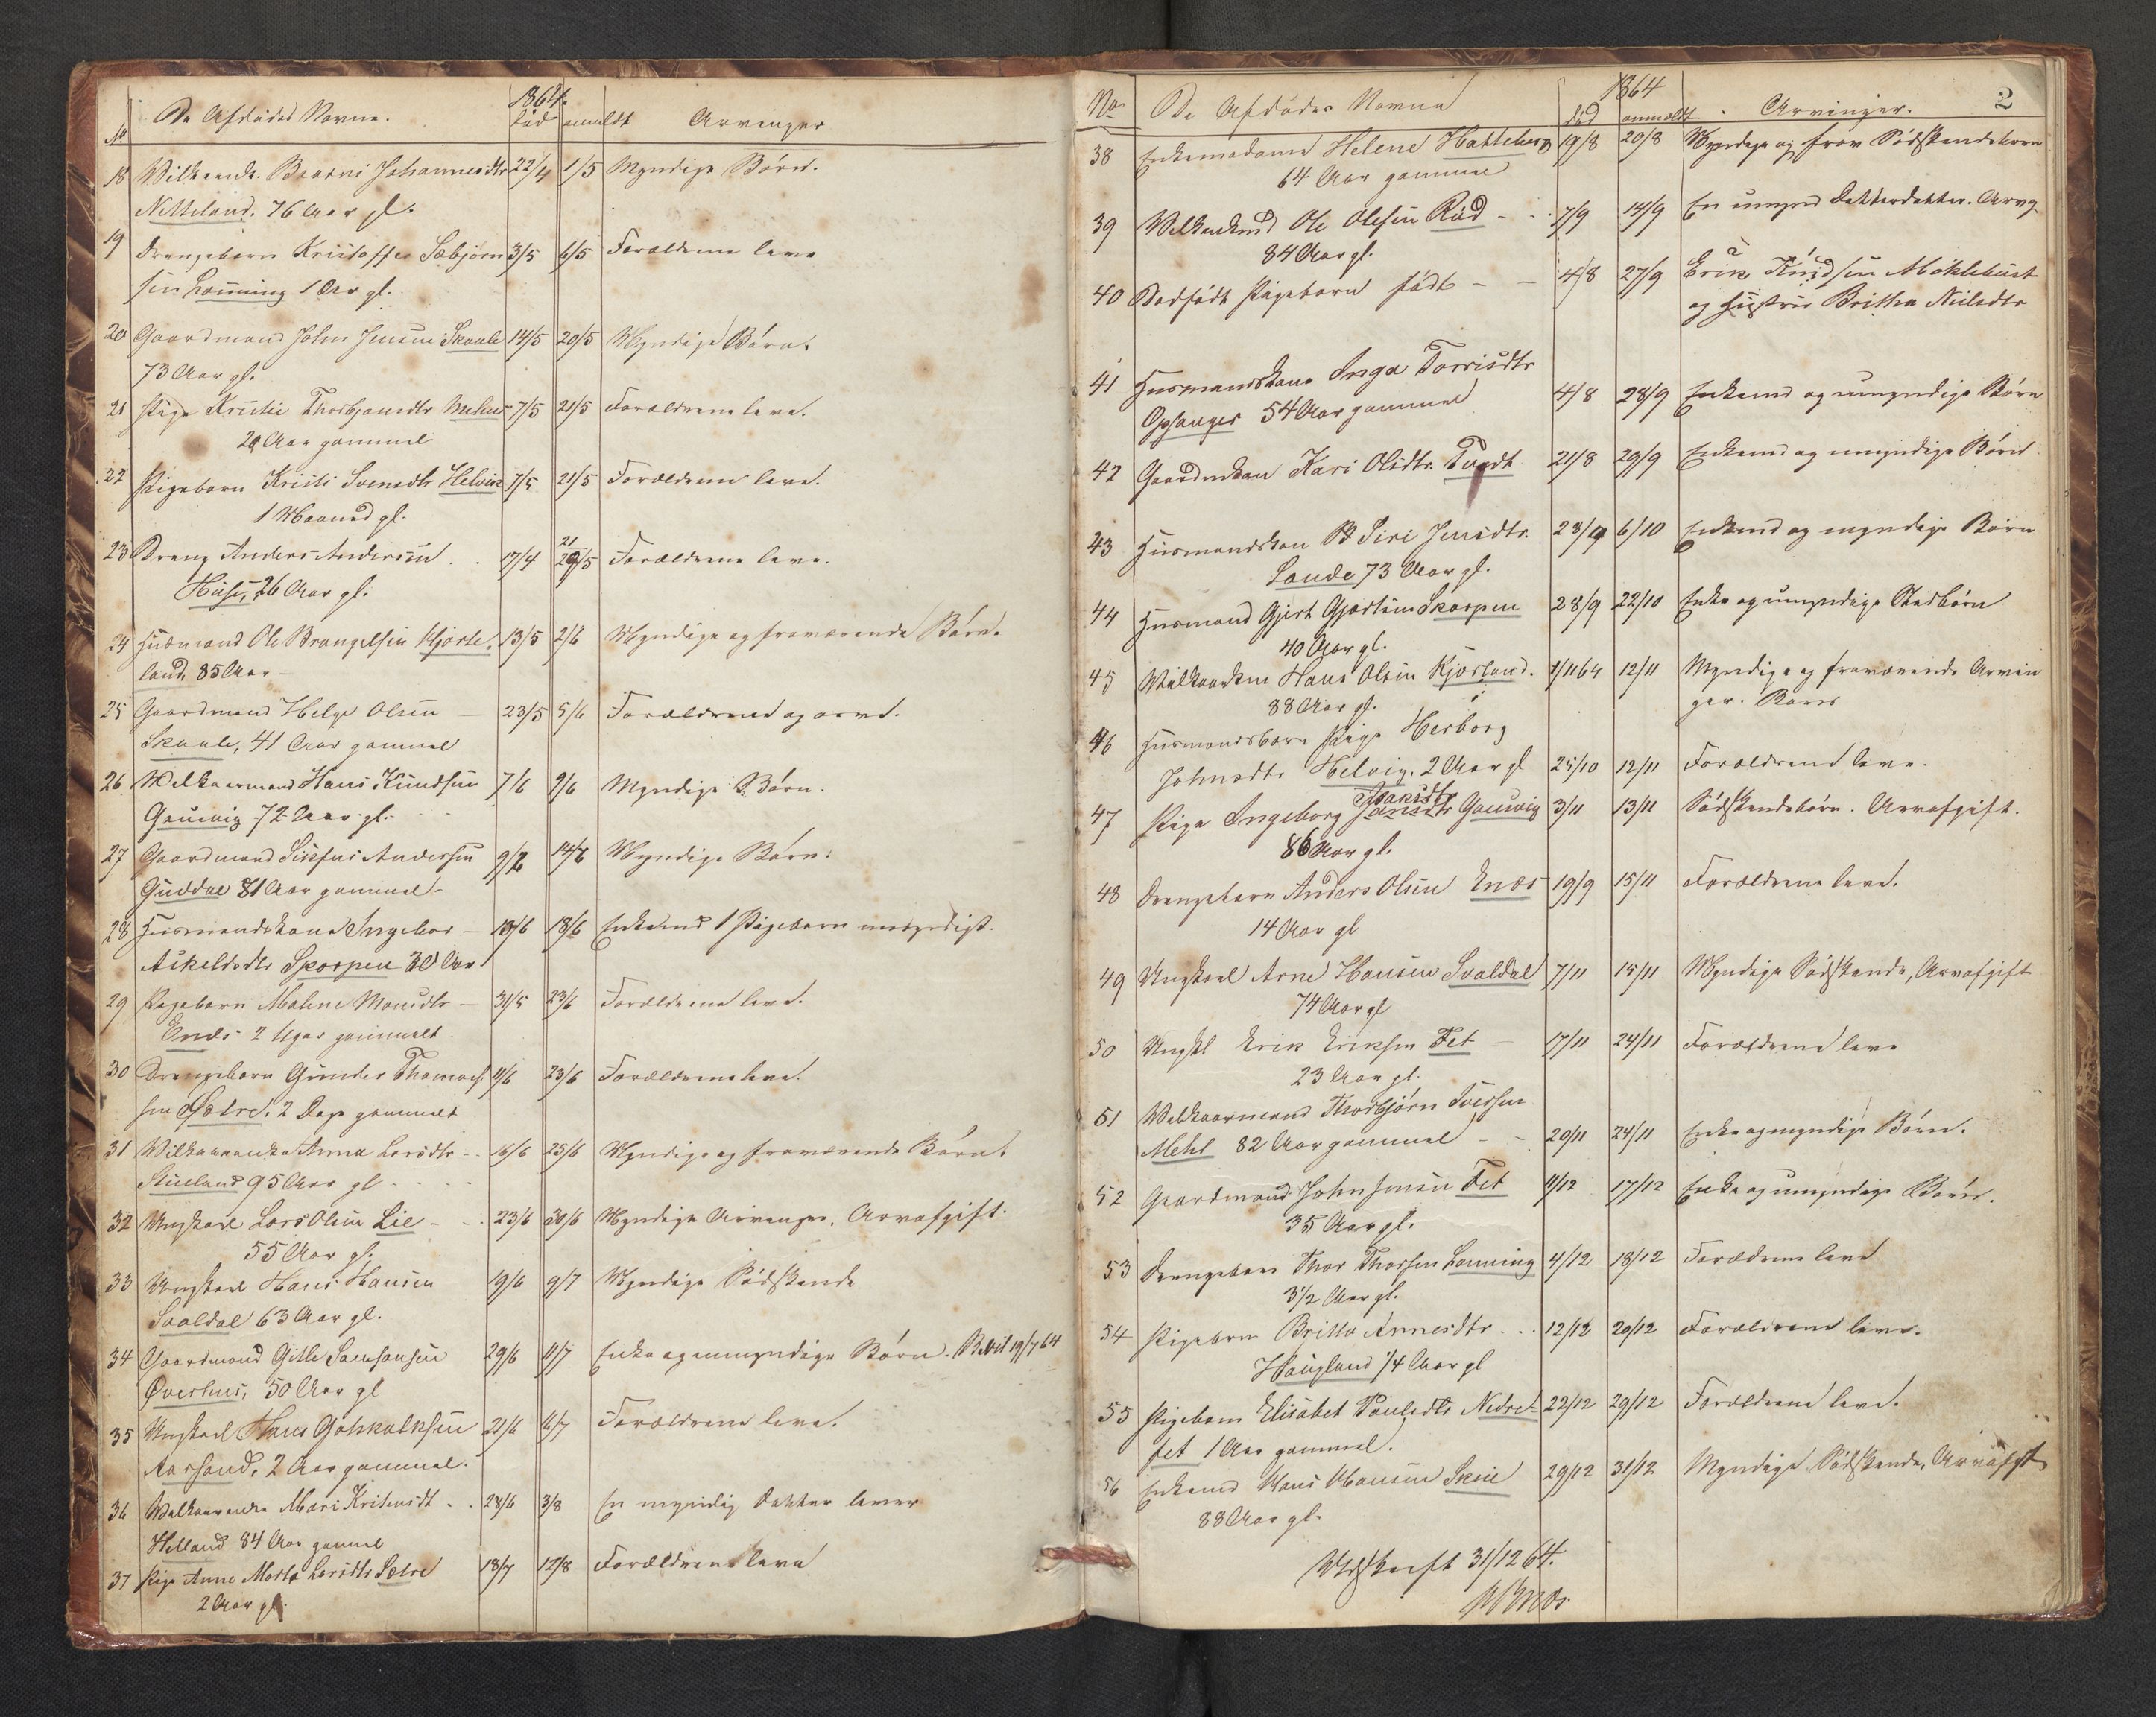 No De Afdødes Navne. 1864. død anmeldt Arvinger
18 Vilkaarsk. Brauni Johannesdtr 22/4 1/5 Myndige Børn.
Netteland. 76 Aar gl.
19 Drengebarn Kristoffer Sæbjørn 3/5 6/5 Forældrene leve
sen Lønning 1 Aar gl.
20 Gaardmand John Jensen Skaale 14/5 20/5 Myndige Børn.
73 Aar gl.
21 Pige Kristi Thorbjønsdtr Mehus 7/5 21/5 Forældrene leve.
20 Aar gammel
22 Pigebarn Kristi Svensdtr Helvig 7/5 21/5 Forældrene leve.
1 Maaned gl.
23 Dreng Anders Andersen . . 17/4 21/5 Forældrene leve.
Huse, 26 Aar gl.
24 Husmand Ole Brangelsen Kjærle- 13/5 2/6 Myndige og fraværende Børn.
land, 85 Aar
25 Gaardmand Helge Olsen 23/5 5/6 Forældrene og arve.
Skaale, 41 Aar gammel
26 Velkaarmand Hans Knudsen 7/6 9/6 Myndige Børn.
Gausvig 72 Aar gl.
27 Gaardmand Sjifus Andersen 9/6 14/6 Myndige Børn.
Guddal 81 Aar gammel
28 Husmandskone Ingebor 13/6 18/6 Enkemd 1 Pigebarn umyndigt.
Askeldsdtr Skorpen 30 Aar
29 Pigebarn Malene Monsdtr 31/5 23/6 Forældrene leve.
Enæs 2 Uger gammelt
30 Drengebarn Gunder Thomas 11/6 23/6 Forældrene leve.
sen Sætre. 2 Dage gammelt
31 Vilkaarenke Anna Larsdtr 16/6 25/6 Myndige og fraværende Børn.
Stueland 95 Aar gl
32 Ungkarl Lars Olsen Lie 23/6 30/6 Myndige Arvinger. Arvafgift.
55 Aar gl.
33 Ungkarl Hans Hansen 19/6 9/7 Myndige Sødskende
Svaldal 63 Aar gl.
34 Gaardmand Gitle Samsonsen 29/6 11/7 Enke og umyndige Børn. Bevil 19/7 64
Øverhus, 50 Aar gl
35 Ungkarl Hans Gotskalksen 21/6 11/7 Forældrene leve.
Aarsand, 2 Aar gammel.
36 Velkaarenke Mari Kristensdt 28/6 3/8 En myndig Datter lever
Helland 84 Aar gammel
37 Pige Anne Marta Larsdtr Sætre 18/7 12/8 Forældrene leve
2 Aar gl.
2
No De Afdødes Navne 1864 død anmeldt Arvinger.
38 Enkemadame Helene Hatteberg 19/8 20/8 Myndige og frav Sødskendebørn
64 Aar gammel
39 Velkaarmd Ole Olesen Rød 7/9 14/9 En umynd Datterdatter. Arvg
84 Aar gl.
40 Dødfødt Pigebarn født 4/8 27/9 Erik Knudsen Møklebust
og hustru Britha Nielsdtr
41 Husmandskone Inga Torrisdtr
Opsanger 54 Aar gammel 4/8 28/9 Enkemd og umyndige Børn
42 Gaardmkone Kari Olsdtr. Tvedt 21/8 29/9 Enkemd og umyndige Børn
43 Husmandskon Siri Jensdtr. 28/9 6/10 Enkemd og myndige Børn
Sande 73 Aar gl.
44 Husmand Gjert Gjertsen Skorpen 28/9 22/10 Enke og umyndige Stedbørn
40 Aar gl.
45 Vilkaarkm Hans Olsen Kjærland. 1/11 64 12/11 Myndige og fraværende Arvin
88 Aar gl. ger. Børn
46 Husmandsbarn Pige Herborg
Johnsdtr Helvig. 2 Aar gl 25/10 12/11 Forældrene leve.
Isaksdtr
47 Pige Ingeborg Jansdtr Gausvig 3/11 13/11 Sødskendebørn. Arvafgift.
86 Aar gl.
48 Drengebarn Anders Olsen Enæs 19/9 15/11 Forældrene leve.
14 Aar gl
49 Ungkarl Arne Hansen Svaldal 7/11 15/11 Myndige Sødskende, Arvafgift
74 Aar gl
50 Ungkl Erik Eriksen Fet 17/11 24/11 Forældrene leve
23 Aar gl.
51 Velkaarmand Thorbjørn Iversen
Mehl 82 Aar gammel 20/11 24/11 Enke og myndige Børn.
52 Gaardmand John Jensen Fet 11/12 17/12 Enke og umyndige Børn.
35 Aar gl.
53 Drengebarn Thor Thorsen Lønning 4/12 18/12 Forældrene leve
3 1/2 Aar gl.
54 Pigebarn Britta Annesdtr 12/12 20/12 Forældrene leve.
Haugland 1/4 Aar gl
55 Pigebarn Elisabet Paulsdtr Nedre 22/12 29/12 Forældrene leve.
fet 1 Aar gammel.
56 Enkemd Hans Hansen Skeie 29/12 31/12 Myndige Sødskende, Arvafgt
88 Aar gl.
Udskrift 31/12 64.